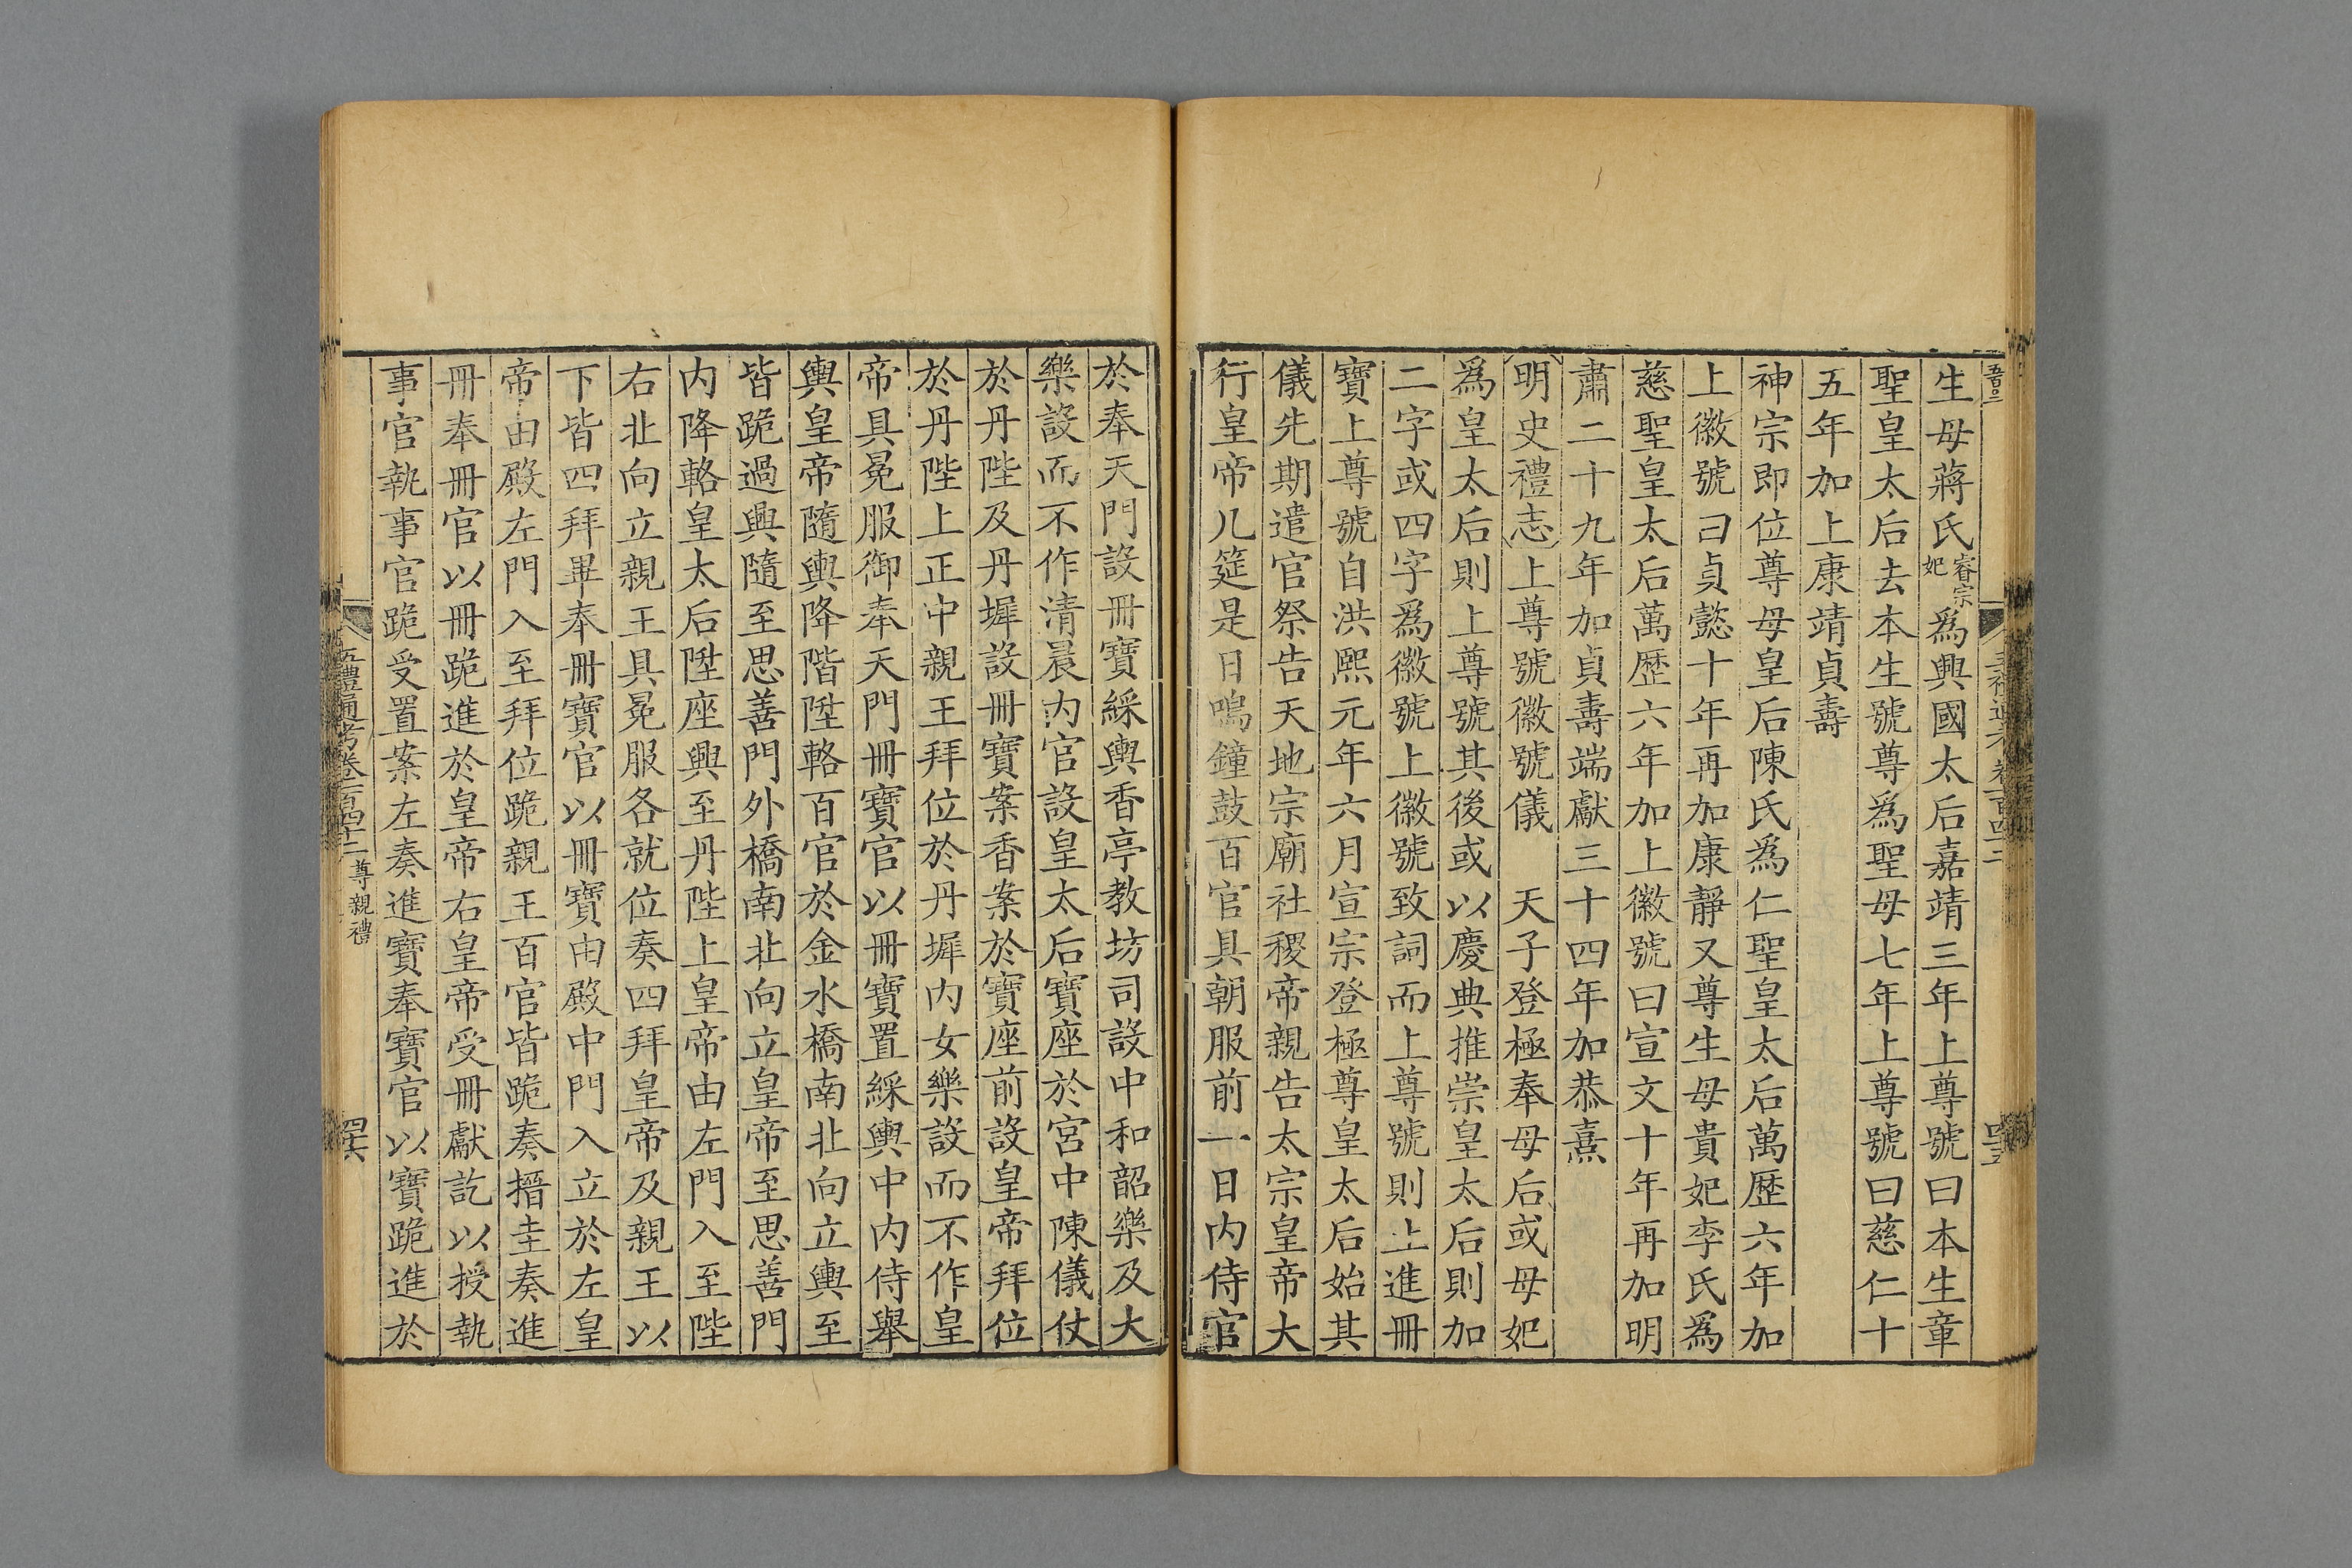 生母蔣氏睿宗妃爲興國太后嘉靖三年上尊號曰本生章
聖皇太后去本生號尊爲聖母七年上尊號曰慈仁十
五年加上康靖貞壽
神宗即位尊母皇后陳氏爲仁聖皇太后萬歷六年加
上徽號曰貞懿十年再加康靜又尊生母貴妃李氏爲
慈聖皇太后萬歷六年加上徽號曰宣文十年再加明
肅二十九年加貞壽端獻三十四年加恭熹
明史禮志上尊號徽號儀 天子登極奉母后或母妃
爲皇太后則上尊號其後或以慶典推崇皇太后則加
二字或四字爲徽號上徽號致詞而上尊號則上進冊
寶上尊號自洪熙元年六月宣宗登極尊皇太后始其
儀先期遣官祭告天地宗廟社稷帝親告太宗皇帝大
行皇帝几筵是日鳴鐘鼓百官具朝服前一日内侍官
於奉天門設冊寶綵輿香亭教坊司設中和韶樂及大
樂設而不作清晨内官設皇太后寶座於宮中陳儀仗
於丹陛及丹墀設冊寶案香案於寶座前設皇帝拜位
於丹陛上正中親王拜位於丹墀内女樂設而不作皇
帝具冕服御奉天門冊寶官以冊寶置綵輿中内侍舉
輿皇帝隨輿降階陞輅百官於金水橋南北向立輿至
皆跪過興隨至思善門外橋南北向立皇帝至思善門
内降輅皇太后陞座興至丹陛上皇帝由左門入至陛
右北向立親王具冕服各就位奏四拜皇帝及親王以
下皆四拜畢奉冊寶官以冊寶由殿中門入立於左皇
帝由殿左門入至拜位跪親王百官皆跪奏搢圭奏進
冊奉冊官以冊跪進於皇帝右皇帝受冊獻訖以授執
事官執事官跪受置案左奏進寶奉寶官以寶跪進於
五禮通考卷一百四十二 尊親禮
四六